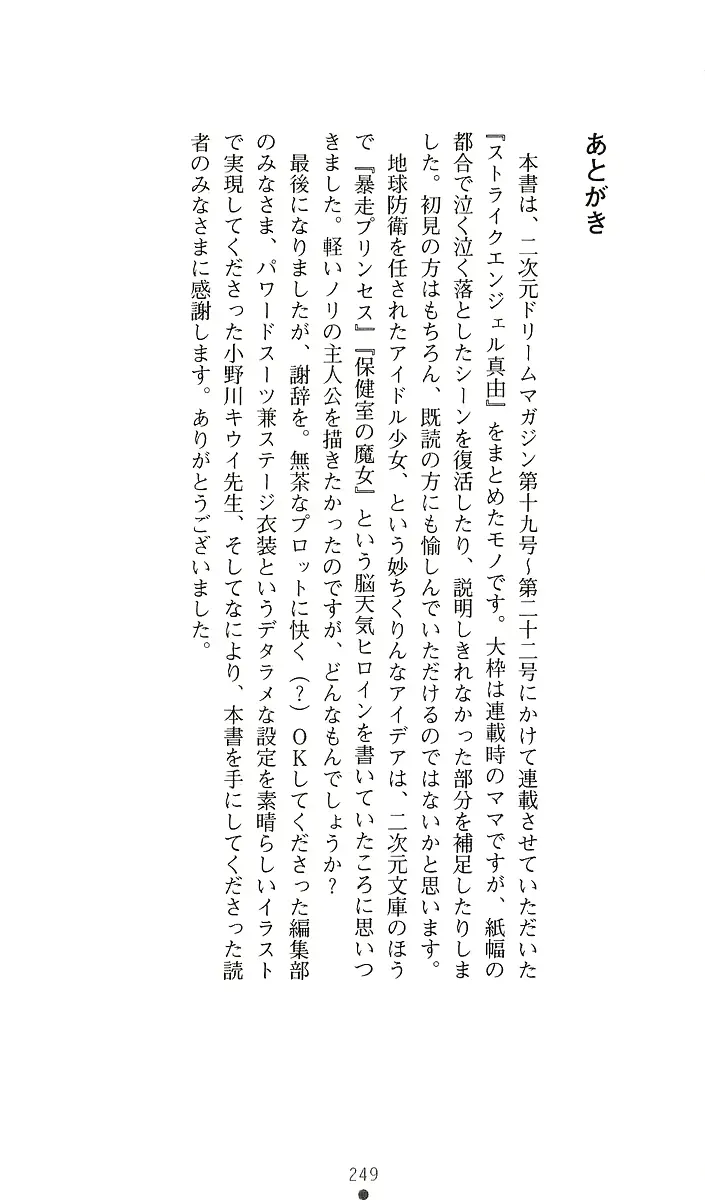 あとがき
　本書は、二次元ドリームマガジン第十九号～第二十二号にかけて連載させていただいた
『ストライクエンジェル真由』をまとめたモノです。大枠は連載時のママですが、紙幅の
都合で泣く泣く落としたシーンを復活したり、説明しきれなかった部分を補足したりしま
した。初見の方はもちろん、既読の方にも愉しんでいただけるのではないかと思います。
　地球防衛を任されたアイドル少女、という妙ちくりんなアイデアは、二次元文庫のほう
で『暴走プリンセス』『保健室の魔女』という脳天気ヒロインを書いていたころに思いつ
きました。軽いノリの主人公を描きたかったのですが、どんなもんでしょうか？
　最後になりましたが、謝辞を。無茶なプロットに快く（？）ＯＫしてくださった編集部
のみなさま、パワードスーツ兼ステージ衣装というデタラメな設定を素晴らしいイラスト
で実現してくださった小野川キウイ先生、そしてなにより、本書を手にしてくださった読
者のみなさまに感謝します。ありがとうございました。
249